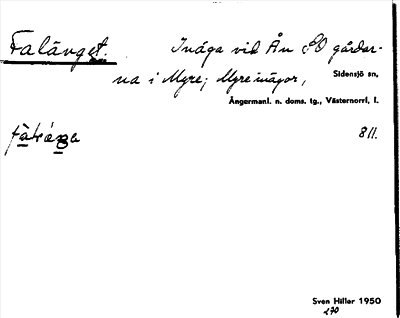 Falänget. Inäga vid Ån c:SO gårdar-
na i Myre; Myreinägor, Sidensjö sn,
Ångermanl. n. doms. lg., Västernorrl. l.
811.
Sven Hiller 1950
270